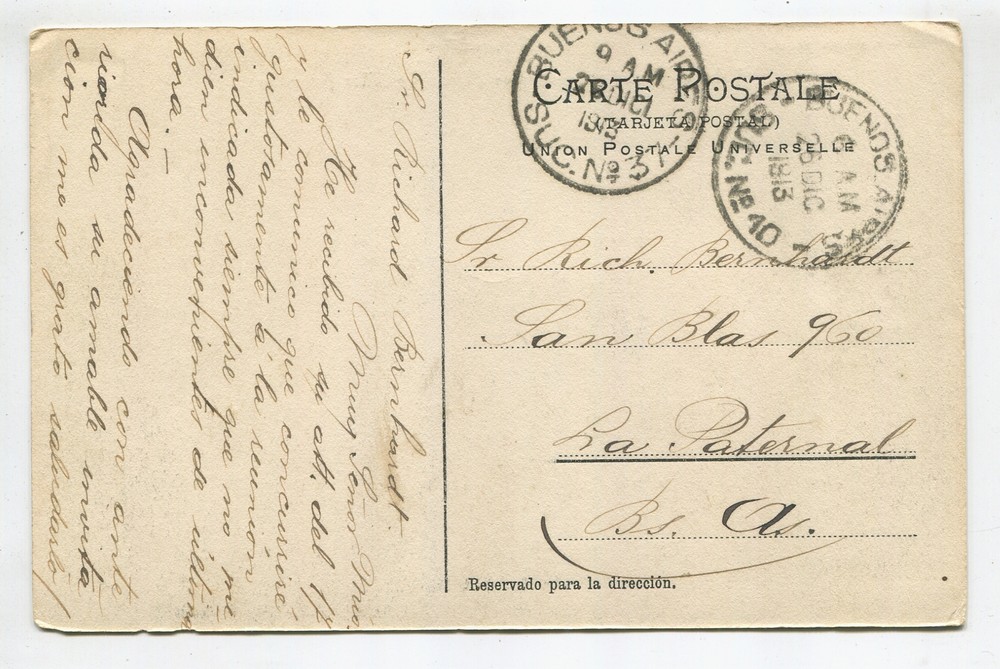 Sr. Richard Bernhardt.
Muy Señor Mio.
He recibido su att. del 17
y le comunico que concurriré
gustosamente á la reunion
indicada siempre que no me
dien inconvenientes de última
hora. –
Agradeciendo con ante
rioridad su amable invita
cion me es grato saludarlo
BUENOS AIRES
9 AM
DIC
1913
SUC. No 37
CARTE POSTALE
(TARJETA POSTAL)
UNION POSTALE UNIVERSELLE
BUENOS AIRES
6 AM
26 DIC
1913
SUC. No 40
Sr Rich. Bernhardt
San Blas 960
La Paternal
Bs. As.
Reservado para la dirección.